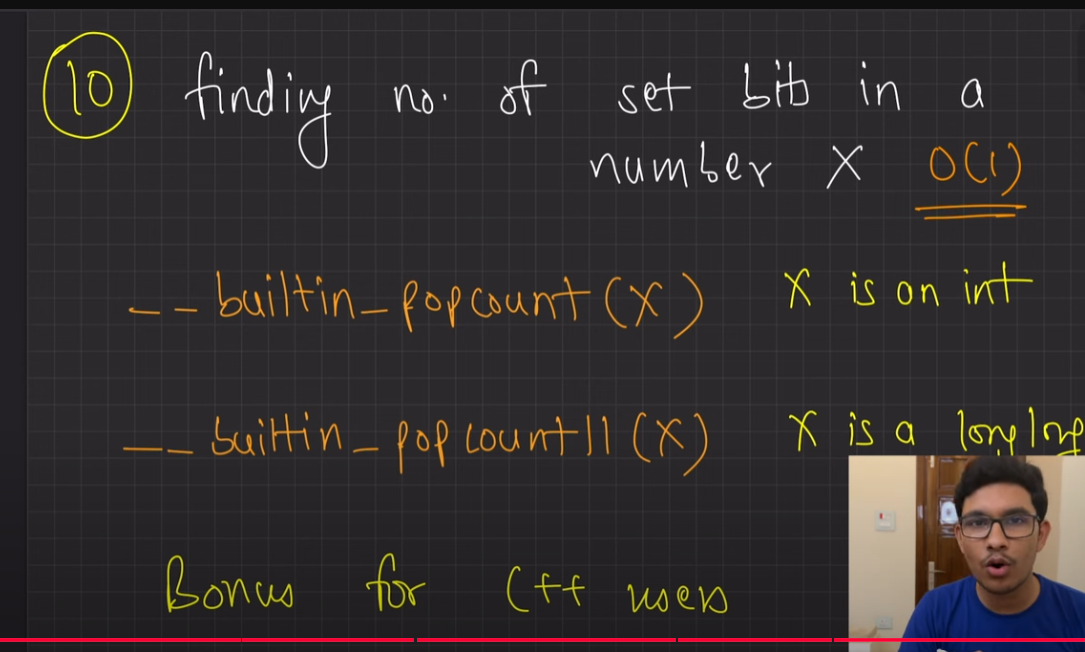 10 finding no. of set bits in a
number X O(1)
__builtin_popcount(X) X is an int
__builtin_popcountll(X) X is a long long
Bonus for C++ users